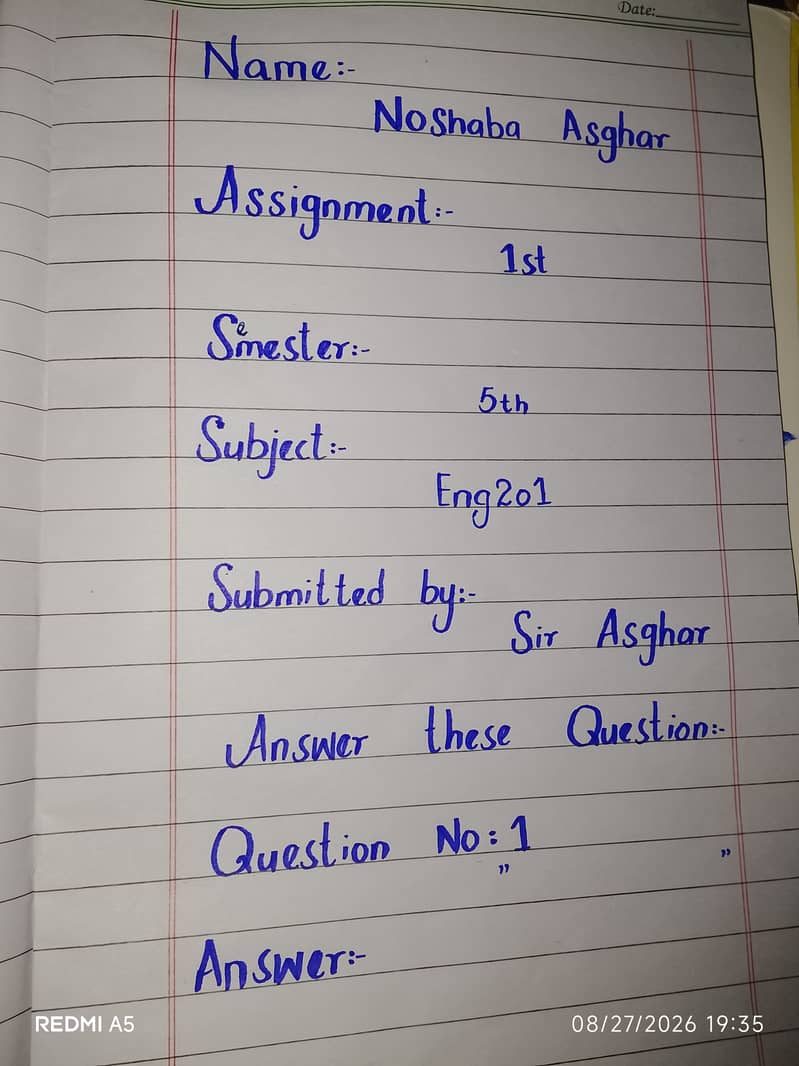 Date:
Name:-
Noshaba Asghar
Assignment:-
1st
Semester:-
5th
Subject:-
Eng201
Submitted by:-
Sir Asghar
Answer these Question:-
Question No: 1
" "
Answer:-
REDMI A5
08/27/2026 19:35